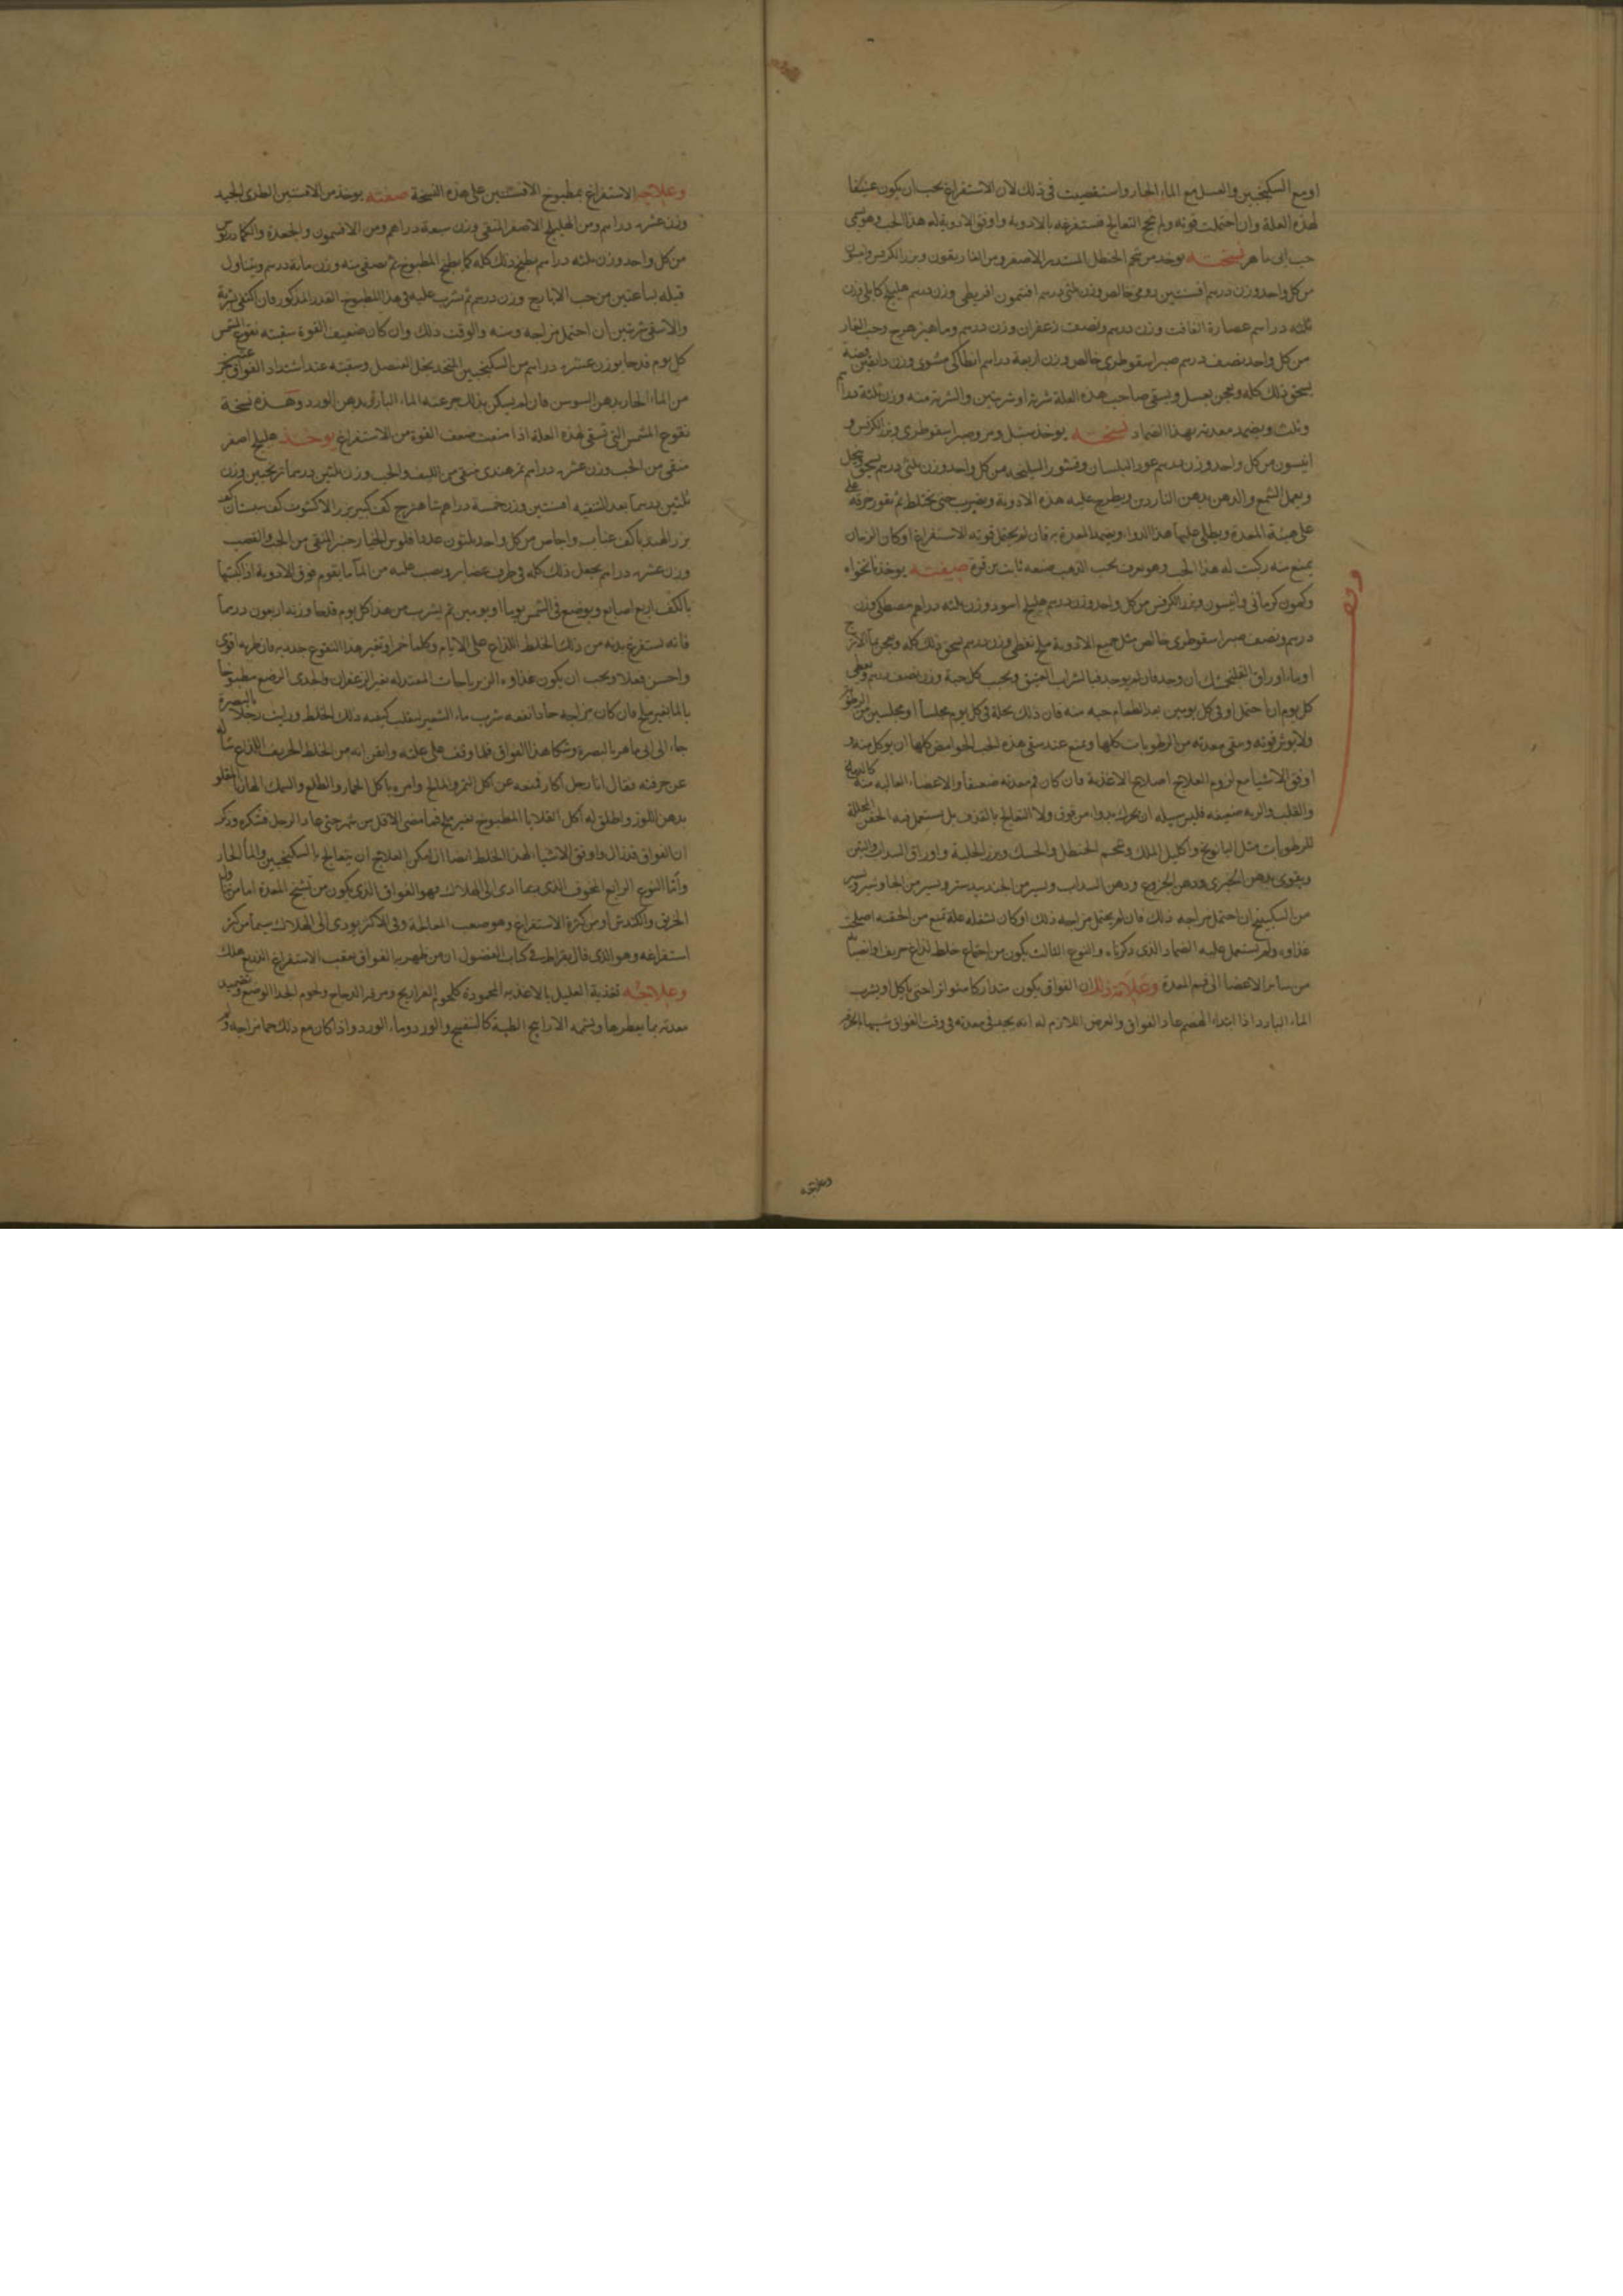 او مع السكنجبين والعسل مع الماء الحار واستقصيت في ذلك لان الاستفراغ يجب ان يكون عنيفا
لهذه العلة وان احتملت قوته ولم ينجح التعالج فتستفرغه بالادوية واوفق الادوية له هذا الحب وهو يسمى
حب ابن ماهر نسخته يوخذ من شحم الحنطل المستدير الاصفر ومن الغاريقون وبزر الكرفس وانيسون
من كل واحد وزن درهم افسنتين رومي خالص وزن ثلثي درهم افتيمون اقريطي وزن درهم هليلج كابلي وزن
ثلثه دراهم عصارة الغافت وزن درهم ونصف زعفران وزن درهم وماهيزهرج وحب الغار
من كل واحد نصف درهم صبر اسقوطري خالص وزن اربعة دراهم انطاكي مشوى وزن دانقين
يسحق ذلك كله ويعجن بعسل ويسقى صاحب هذه العلة شربة او شربتين والشربة منه وزن ثلثة دراهم
وثلث ويضمد معدته بهذا الضماد نسخته يوخذ سنبل ومر وصبر اسقوطري وبزر الكرفس و
انيسون من كل واحد وزن درهم عود البلسان وقشور السليخه من كل واحد وزن ثلثي درهم يسحق وينخل
ويعمل الشمع والدهن بدهن الناردين ويطرح عليه هذه الادوية ويضرب حتى يختلط ثم تقور خرقة على
على هيئة المعدة ويطلى عليها هذا الدواء ويضمد المعدة به فان لم يحتمل قوته الاستفراغ او كان الزمان
يمنع منه ركبت له هذا الحب وهو يعرف بحب الذهب صنعه ثابت بن قرة صفته يوخذ نانخواه
وكمون كرماني وانيسون وبزر الكرفس من كل واحد وزن درهم هليلج اسود وزن ثلثه دراهم مصطكى وزن
درهم ونصف صبر اسقوطري خالص مثل جميع الادوية ملح نفطي وزن درهم يسحق ذلك كله ويعجن بماء الاترج
او بماء اوراق الفلنجمشك ان وجد فان لم يوجد فبالشراب العتيق ويحبب كل حبة وزن نصف درهم ويعطى
كل يوم ان احتمل او في كل يومين بعد الطعام حبه منه فان ذلك يحله في كل يوم مجلساً او مجلسين من الرطوبة
ولا يوثر قوته وينقى معدته من الرطوبات كلها ويمنع عند سقي هذه الحب الحوامض كلها ان يوكل منه و
اوفق الاشيا مع لزوم العلاج اصلاح الاغذية فان كان فم معدته ضعيفا والاعضاء العاليه منه
والقلب والريه ضعيفه فليس سبيله ان يحرك بدواء من فوق ولا التعالج بالقذف بل يستعمل فيه الحقن المحللة
للرطوبات مثل البابونج واكليل الملك وشحم الحنطل والحسك وبزر الحلبة واوراق السداب والتين
ويقوى بدهن الخيري ودهن الخروع ودهن السداب ويسير من الجندبيدستر ويسير من الجاوشير ويسير
من السكبينج ان احتمل مزاجه ذلك فان لم يحتمل مزاجه ذلك او كان بسفله علة تمنع من الحقنه اصلحت
غذاوه ولم تستعمل عليه الضماد الذي ذكرناه والنوع الثالث يكون من اجتماع خلط لذاع حريف
من ساير الاعضا الى فم المعدة وعلامة ذلك ان الفواق يكون متداركا متواترا حتى ياكل او يشرب
الماء البارد اذا ابتداء الهضم عاد الفواق والعرض اللازم له انه يجد في معدته في وقت الفواق شبيها
وعلاجه
وعلاجه الاستفراغ بمطبوخ الافسنتين على هذه النسخة صفته يوخذ من الافسنتين الطرى الجيد
وزن عشره دراهم ومن الهليلج الاصفر المنقى وزن سبعة دراهم ومن الافتيمون والجعدة والكمادريوس
من كل واحد وزن ثلثه دراهم يطبخ ذلك كله كما يطبخ المطبوخ ثم يصفى منه وزن مائة درهم ويتناول
قبله بساعتين من حب الايارج وزن درهم ثم يشرب عليه في هذا المطبوخ القدر المذكور فان اكتفى بشربة
والا سقي شربتين ان احتمل مزاجه وسنه والوقت ذلك وان كان ضعيف القوة سقيته نقوع المشمس
كل يوم قدحا بوزن عشره دراهم من السكنجبين المتخذ بخل العنصل وسقيته عند اشتداد الفواق
من الماء الحار بدهن السوسن فان لم يسكن بذلك جرعته الماء البارد بدهن الورد وهذه نسخة
نقوع المشمس التي تسقى لهذه العلة اذا منعت ضعف القوة من الاستفراغ يوخذ هليلج اصفر
منقى من الحب وزن عشره دراهم تمرهندى منقى من الليف والحب وزن ثلثين درهما ترنجبين وزن
ثلثين درهما بعد التنقيه افسنتين وزن خمسة دراهم شاهترج كف كبير بزر الاكشوث كف سبستان كف
بزر الهندبا كف عناب واجاص من كل واحد ثلثون عددا فلوس الخيارشنبر المنقى من الحب والقصب
وزن عشره دراهم يجعل ذلك كله في ظرف غضار ويصب عليه من الماء ما يقوم فوق الادوية اذا كبستها
بالكف اربع اصابع ويوضع في الشمس يوما او يومين ثم يشرب من هذا كل يوم قدحا وزنه اربعون درهما
فانه تستفرغ بدنه من ذلك الخلط اللذاع على الايام وكلما خمر او تغير هذا النقوع جدد به فان طريه اقوى
واحسن فعلا ويجب ان يكون غذاوه الزيرباجات المعتدله بغير الزعفران والجدى الرضيع مطبوخا
بالماء بغير ملح فان كان مزاجه حادا نفعه شرب ماء الشعير ليقلب كيفيه ذلك الخلط ورايت رجلا بالبصرة
جاء الى ابي ماهر بالبصرة وشكا هذا الفواق فلما وقف على علته وايقن انه من الخلط الحريف اللذاع ساله
عن حرفته فقال انا رجل اكار فمنعه عن اكل التمر والملح وامره باكل الجمار والطلع والسمك الهازبا المقلو
بدهن اللوز واطلق له اكل القلايا المطبوخ بغير ملح فما مضى الاقل من شهر حتى عاد الرجل فشكره وذكر
ان الفواق قد زال واوفق الاشياء لهذا الخلط ايضا ان امكن العلاج ان يتعالج بالسكنجبين والماء الحار
واما النوع الرابع المخوف الذي ربما ادى الى الهلاك فهو الفواق الذي يكون من تشنج المعدة اما من تناول
الخربق والكندش او من كثرة الاستفراغ وهو صعب المعالجة وفي الاكثر يودي الى الهلاك سيما من كثر
استفراغه وهو الذي قال بقراط في كتاب الفصول ان من ظهر به الفواق بعقب الاستفراغ الذريع هلك
وعلاجه تغذية العليل بالاغذيه المحمودة كلحوم الفراريج ومرقه الدجاج ولحوم الجدا الرضع وتضميد
معدته بما يعطرها ويشمه الاراييح الطيبة كالبنفسج والورد وماء الورد واذا كان مع ذلك حما مزاجه